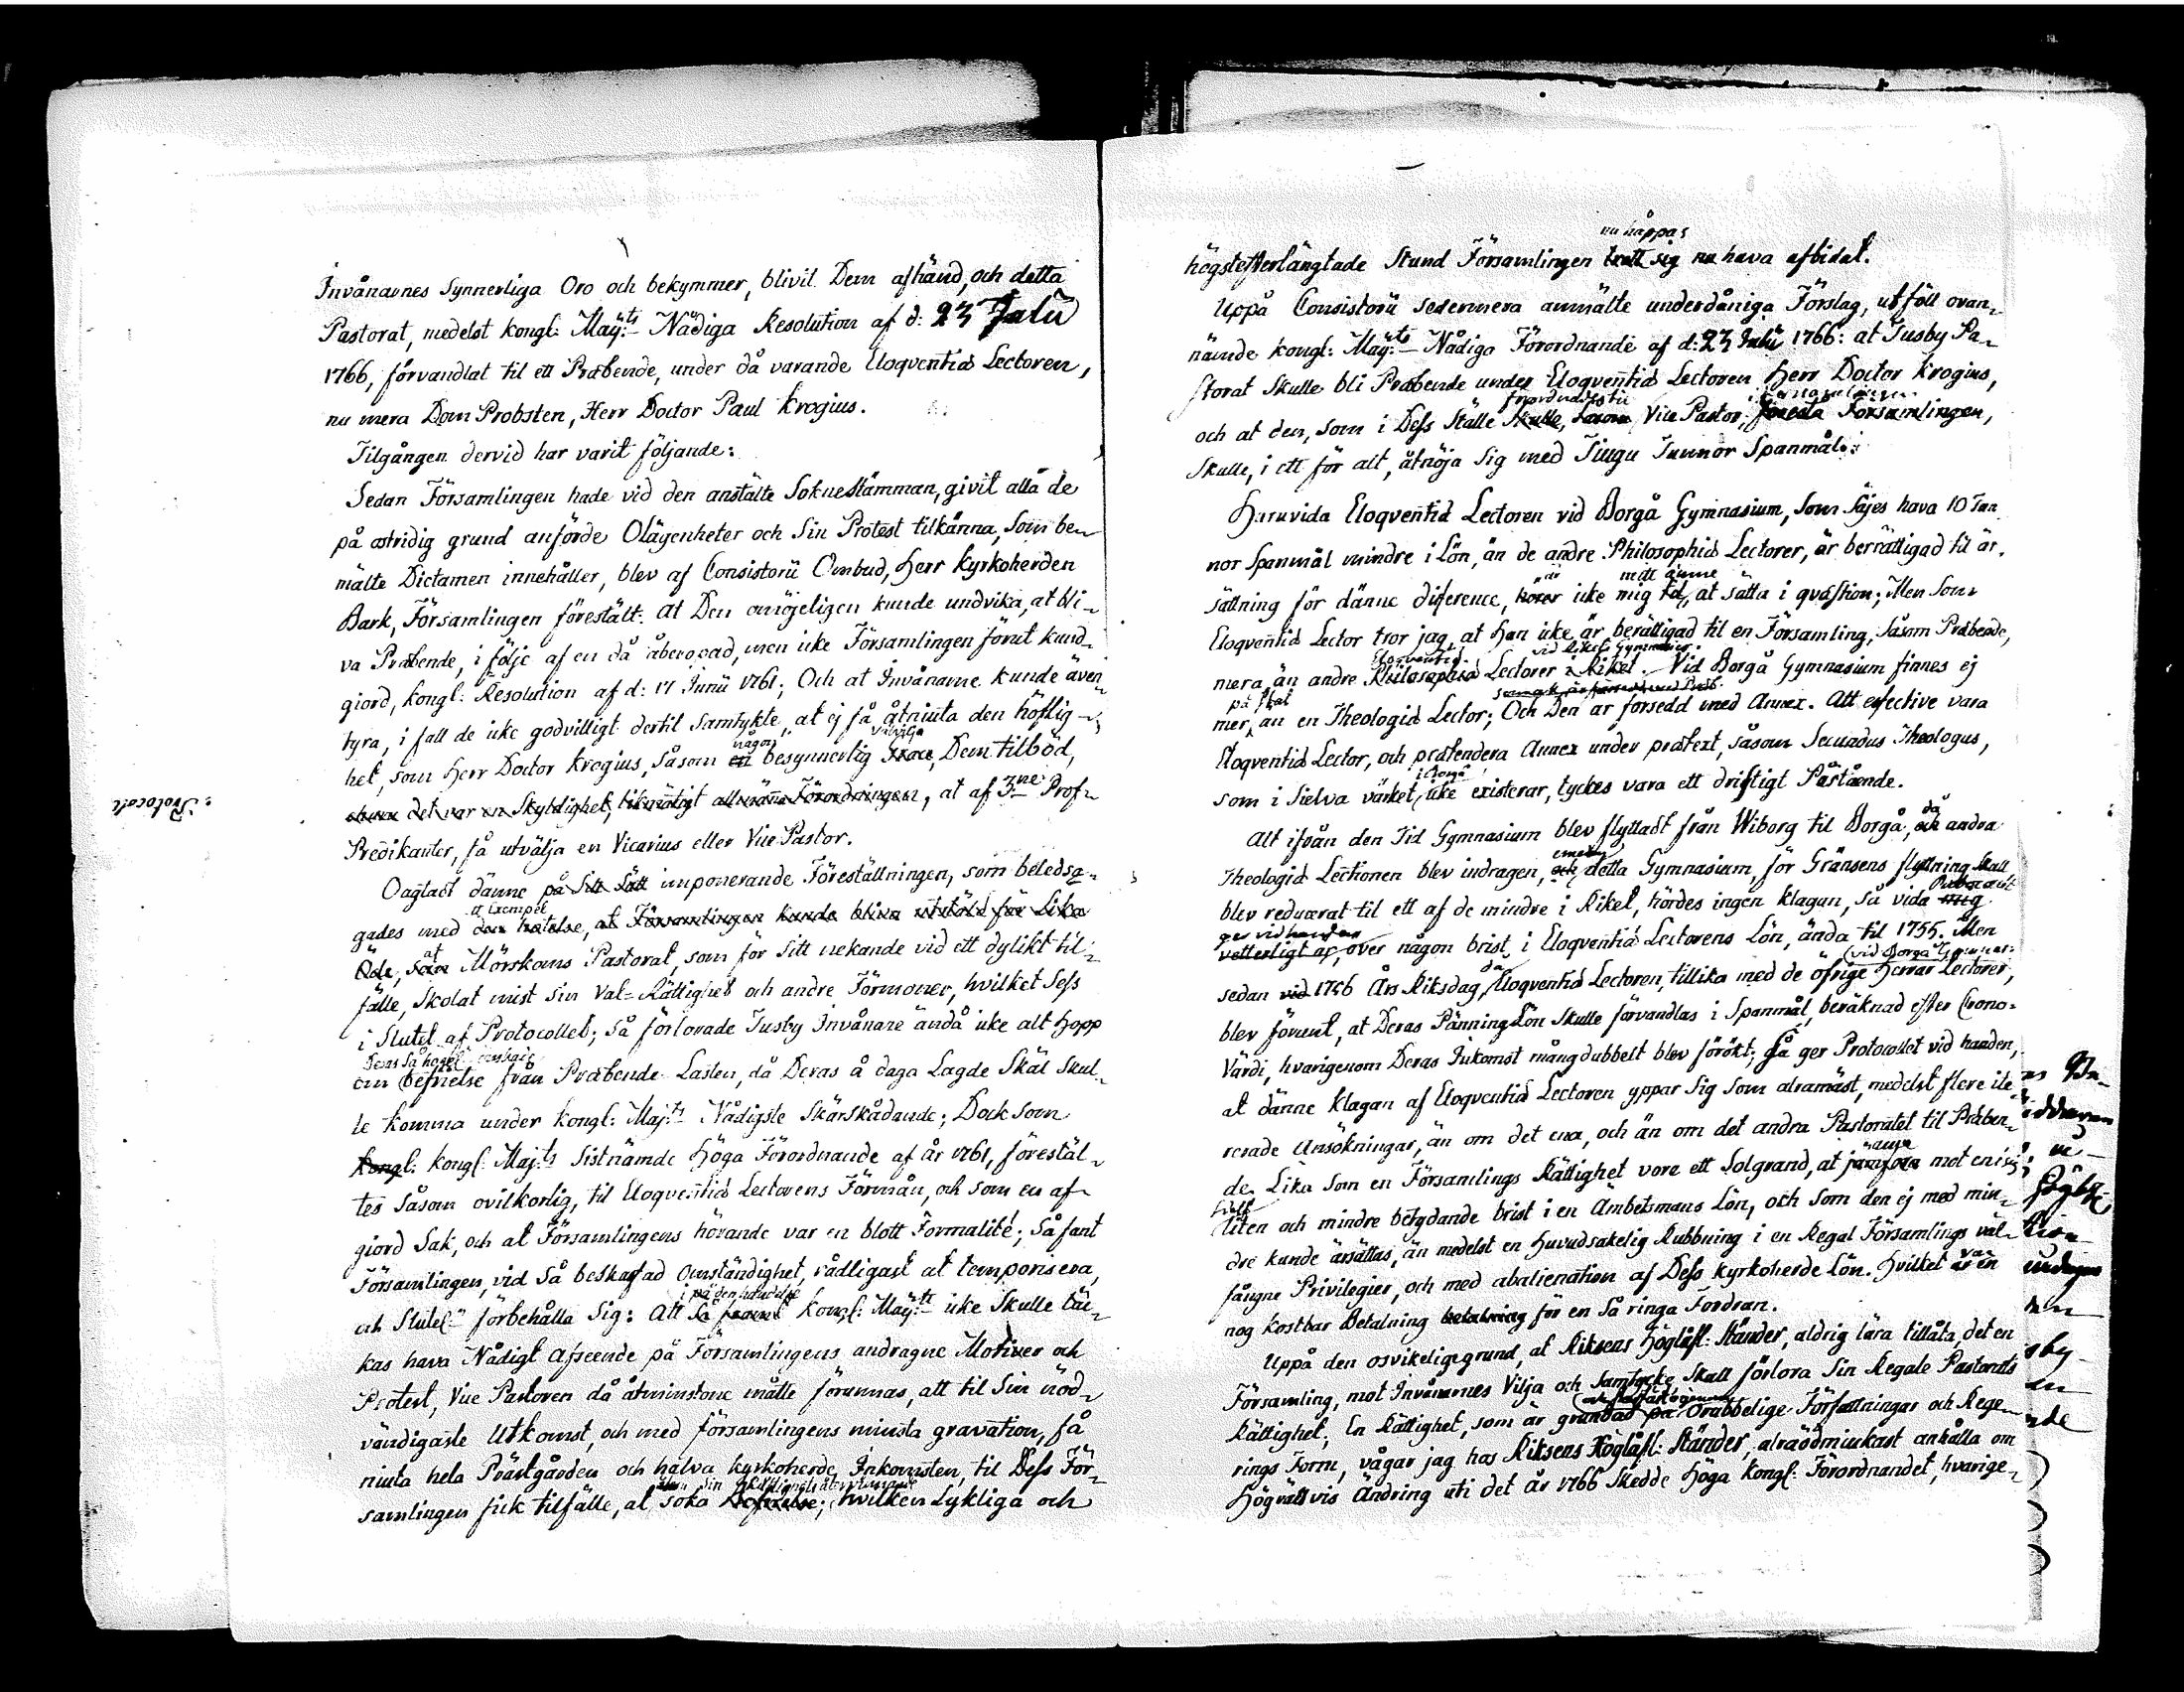 Invånarnes Synnerliga Oro och bekymmer, blivit Dem afhänd, och detta
Pastorat, medelst Kongl: Maÿ:ts Nådiga Resolution af d: 23 Julii
1766, förvandlat til ett Præbende, under då varande Eloqventiæ Lectoren,
nu mera Dom Probsten, Herr Doctor Paul Krogius.
Tilgången dervid har varit följande:
Sedan Församlingen hade vid den anstälte Sokne Stämman, givit alla de
på ostridig grund anförde Olägenheter och Sin Protest tilkänna, Som be-
mälte Dictamen innehåller, blev af Consistorii Ombud, Herr Kyrkoherden
Bark, Församlingen förestält: at Den omöjeligen kunde undvika, at bli-
va Præbende, i följe af en då åberopad, men icke Församlingen förut kund-
giord, Kongl: Resolution af d: 17 Junii 1761; Och at Invånarne kunde även
tyra, i fall de icke godvilligt dertil Samtykte, at ej få åtniuta den höflig-
het, som Herr Doctor Krogius, Såsom någon besynnerlig Dem tilböd,
det var en Skyldighet, likmätigt allmänna Förordningen, at af 3:ne Prof-
Predikanter, få utvälja en Vicarius eller Vice Pastor.
Oagtadt dänne på Sitt Sätt imponerande Föreställningen, som beledsa-
ett Exempel
gades med den hotelse, at Församlingen kunde bliva utstäld för Lika
Öde, som at Mörskoms Pastorat, som för Sitt nekande vid ett dylikt til-
fälle, Skolat mist Sin Val-Rättighet och andre Förmoner, hvilket Sess
i Slutet af Protocollet; Så förlorade Tusby Invånare ändå icke alt Hopp
om befrielse från Præbende Lasten, då Deras å daga Lagde Skäl Skul-
le komma under Kongl: Maj:ts Nådigste Skärskådande; Dock Som
Kongl: Kongl: Maj:ts Sistnämde Höga Förordnande af år 1761, förestäl-
tes Såsom ovilkorlig, til Eloqventiæ Lectorens Förmån, och som en af-
giord Sak, och at Församlingens hörande var en blott Formalité; Så fant
Församlingen, vid Så beskaffad Omständighet, rådligast at temporisera,
i på den händelse
och Slutel: förbehålla Sig: Att Kongl: Maÿ:tt icke Skulle täc-
kas hava Nådigt Afseende på Församlingens andragne Motiver och
Protest, Vice Pastoren då åtminstone måtte förunnas, att til Sin nöd-
vändigaste Utkomst, och med församlingens minsta gravation, få
niuta hela Prästgården och halva Kyrkoherde Inkomsten, til Dess För-
samlingen fick tilfälle, at söka Befrielse; hvilken Lykliga och
: Protocole
nu håppas
högstefterlängtade Stund Församlingen trott sig nu hava afbidat.
Uppå Consistorii sedermera anmälte underdåniga Förslag, utföll ovan-
nämde Kongl: Maÿ:ts Nådiga Förordnande af d: 23 Julii 1766: at Tusby Pa-
storat Skulle bli Præbende under Eloqventiæ Lectoren Herr Doctor Krogius,
och at den, Som i Dess Ställe Skulle, Såsom Vice Pastor, förestå Församlingen,
Skulle, i ett för alt, åtnöja Sig med Tiugu Tunnor Spanmål.
Huruvida Eloqventiæ Lectoren vid Borgå Gymnasium, Som Säjes hava 10 Tun
nor Spanmål mindre i Lön, än de andre Philosophiæ Lectorer, är berättigad til är-
mitt ämne
sättning för dänne diference, hörer icke mig til, at sätta i qvæstion; Men Som
Eloqventiæ Lector tror jag, at Han icke är berättigad til en Församling, Såsom Præbende,
Eloqventiæ vid Rikets Gymnasier.
mera än andre Philosophiæ Lectorer i Riket. Vid Borgå Gymnasium finnes ej
mer, än en Theologiæ Lector; Och Den är försedd med Annex. Att effective vara
Eloqventiæ Lector, och prætendera Annex under prætext, såsom Secundus Theologus,
i Borgå
som i Sielva värket icke existerar, tyckes vara ett driftigt Påstående.
Alt ifrån den Tid Gymnasium blev flyttadt från Wiborg til Borgå, och då andra
Theologiæ Lectionen blev indragen, och detta Gymnasium, för Gränsens flyttning Skull
blev reducerat til ett af de mindre i Riket, hördes ingen klagan, Så vida mig
vetterligt är, över någon brist i Eloqventiæ Lectorens Lön, ända til 1755. Men
(vid Borgå Gymnas:
sedan vid 1756 Års Riksdag, då Eloqventiæ Lectoren, tillika med de öfrige Herrar Lectorer,
blev förunt, at Deras Pänning Lön Skulle förvandlas i Spanmål, beräknad efter Crono-
Värdi, hvarigenom Deras Inkomst mångdubbelt blev förökt; Så ger Protocollet vid handen,
at dänne klagan af Eloqventiæ Lectoren yppar Sig Som alramäst, medelst flere ite-
rerade Ansökningar, än om det ena, och än om det andra Pastoratet til Præben-
de. Lika Som en Församlings Rättighet vore ett Solgrand, at jämföra mot en
liten och mindre betydande brist i en Ämbetsmans Lön, och Som den ej med min-
dre kunde ärsättas, än medelst en Huvudsakelig Rubbning i en Regal Församlings väl-
fångne Privilegier, och med abalienation af Dess Kyrkoherde Lön. Hvilket är var en
nog kostbar Betalning betalning för en Så ringa Fordran.
Uppå den osvikelige grund, at Riksens Höglåfl: Ständer, aldrig lära tillåta, det en
Församling, mot Invånarnes Vilja och Samtycke Skall förlora Sin Regale Pastorats
Rättighet; En Rättighet, som är grundad på Orubbelige Författningar och Rege-
rings Form, vågar jag hos Riksens Höglåfl: Ständer, alraödmiukast anhålla om
Högrättvis Ändring uti det år 1766 Skedde Höga Kongl: Förordnandet, hvarige-